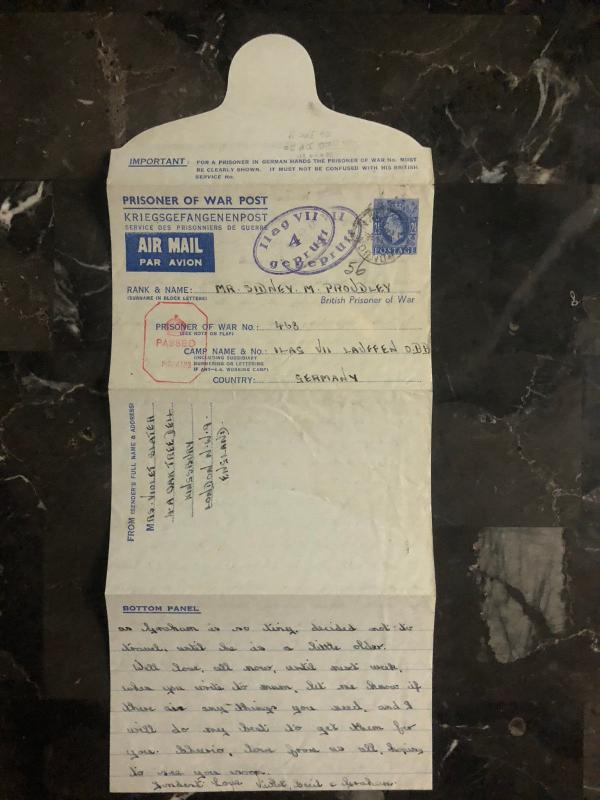 IMPORTANT: FOR A PRISONER IN GERMAN HANDS THE PRISONER OF WAR No. MUST
BE CLEARLY SHOWN. IT MUST NOT BE CONFUSED WITH HIS BRITISH
SERVICE No.
PRISONER OF WAR POST
KRIEGSGEFANGENENPOST
SERVICE DES PRISONNIERS DE GUERRE
AIR MAIL
PAR AVION
Ilag VII
4
geprüft
POSTAGE
56
RANK & NAME: MR. SIDNEY. M. PROUDLEY
(SURNAME IN BLOCK LETTERS)
British Prisoner of War
PRISONER OF WAR No.: 468
(SEE NOTE ON FLAP)
PASSED
CAMP NAME & No.: ILAG VII LAUFFEN OBB
(INCLUDING SUBSIDIARY
NUMBERING OR LETTERING
IF ANY—E.G. WORKING CAMP)
COUNTRY: GERMANY
FROM (SENDER'S FULL NAME & ADDRESS)
MRS. VIOLET SLATER
OAKTREE DELL
KINGSBURY
LONDON N.W.9.
ENGLAND.
BOTTOM PANEL
as Graham is so tiny, decided not to
travel until he is a little older.
Will love, all now, until next week,
when you write to mum, let me know if
there is any things you need, and I
will do my best to get them for
you. Cheerio, love from us all, hoping
to see you soon.
Fondest Love Violet, &amp; Graham.